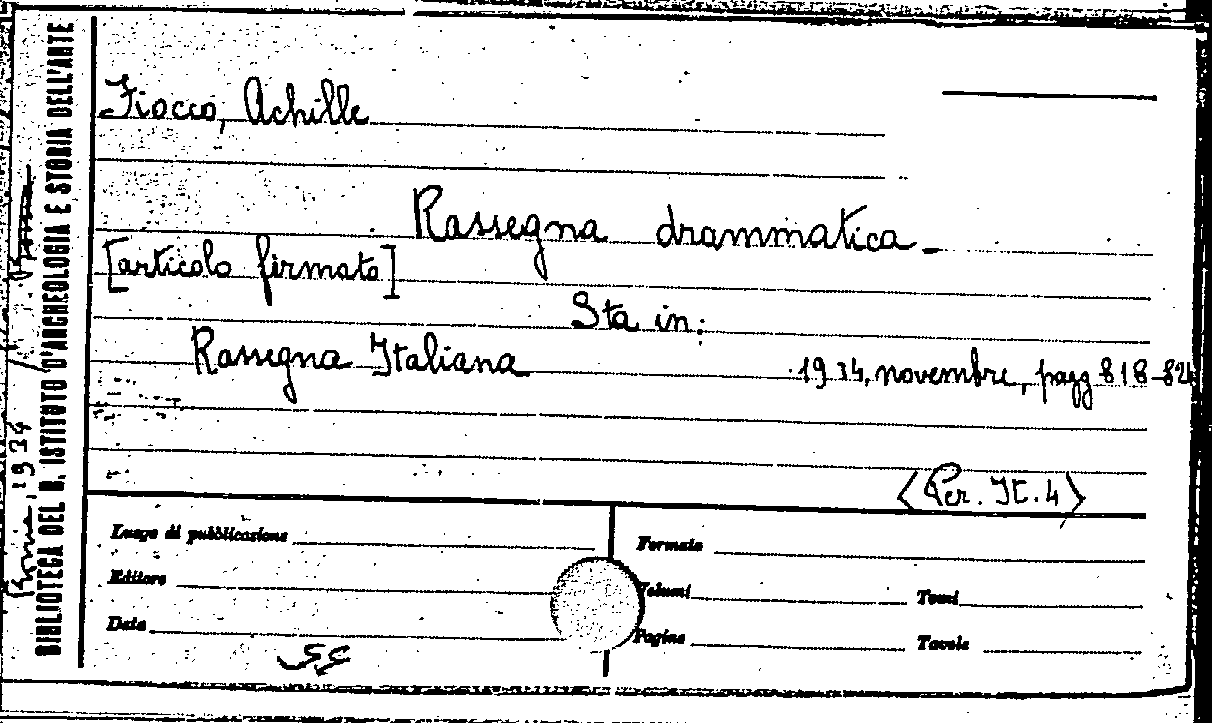 BIBLIOTECA DEL R. ISTITUTO D'ARCHEOLOGIA E STORIA DELL'ARTE
Roma, 1934
Fiocco, Achille
Rassegna drammatica_
[articolo firmato]
Sta in:
Rassegna Italiana 1934, novembre, pagg 818-82
<Per. It. 4>
Luogo di pubblicazione
Formato
Editore
Volumi
Tomi
Data
Pagine
Tavole